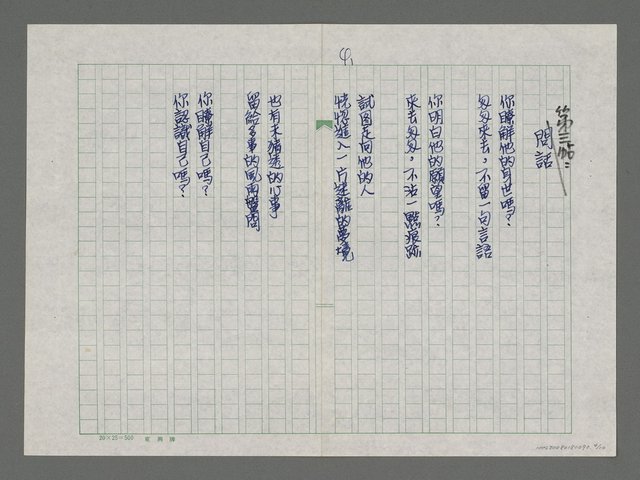 4
第三帖：
問話
你瞭解他的身世嗎？
匆匆來去，不留一句言語
你明白他的願望嗎？
來去匆匆，不沾一點痕跡
試圖走向他的人
恍惚進入一片迷離的夢境
也有未猜透的心事
留給多事的風雨盤問
你瞭解自己嗎？
你認識自己嗎？
20×25=500